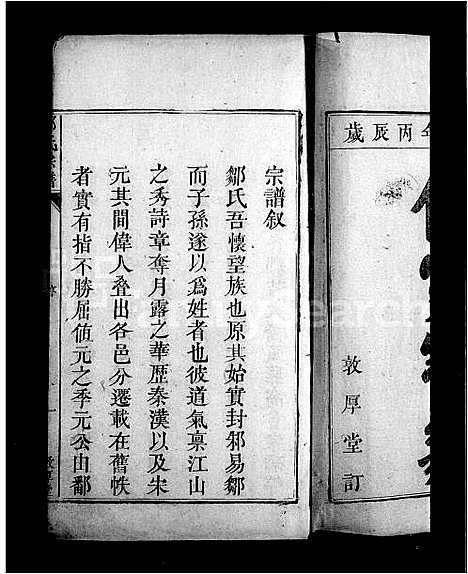 年丙辰歲
敦厚堂訂
宗譜叙
鄒氏吾懷望族也原其始實封邾易鄒
而子孫遂以爲姓者也彼道氣禀江山
之秀詩章奪月露之華歷秦漢以及宋
元其間偉人叠出各邑分遷載在舊帙
者實有指不勝屈值元之季元公由鄱
氏宗譜